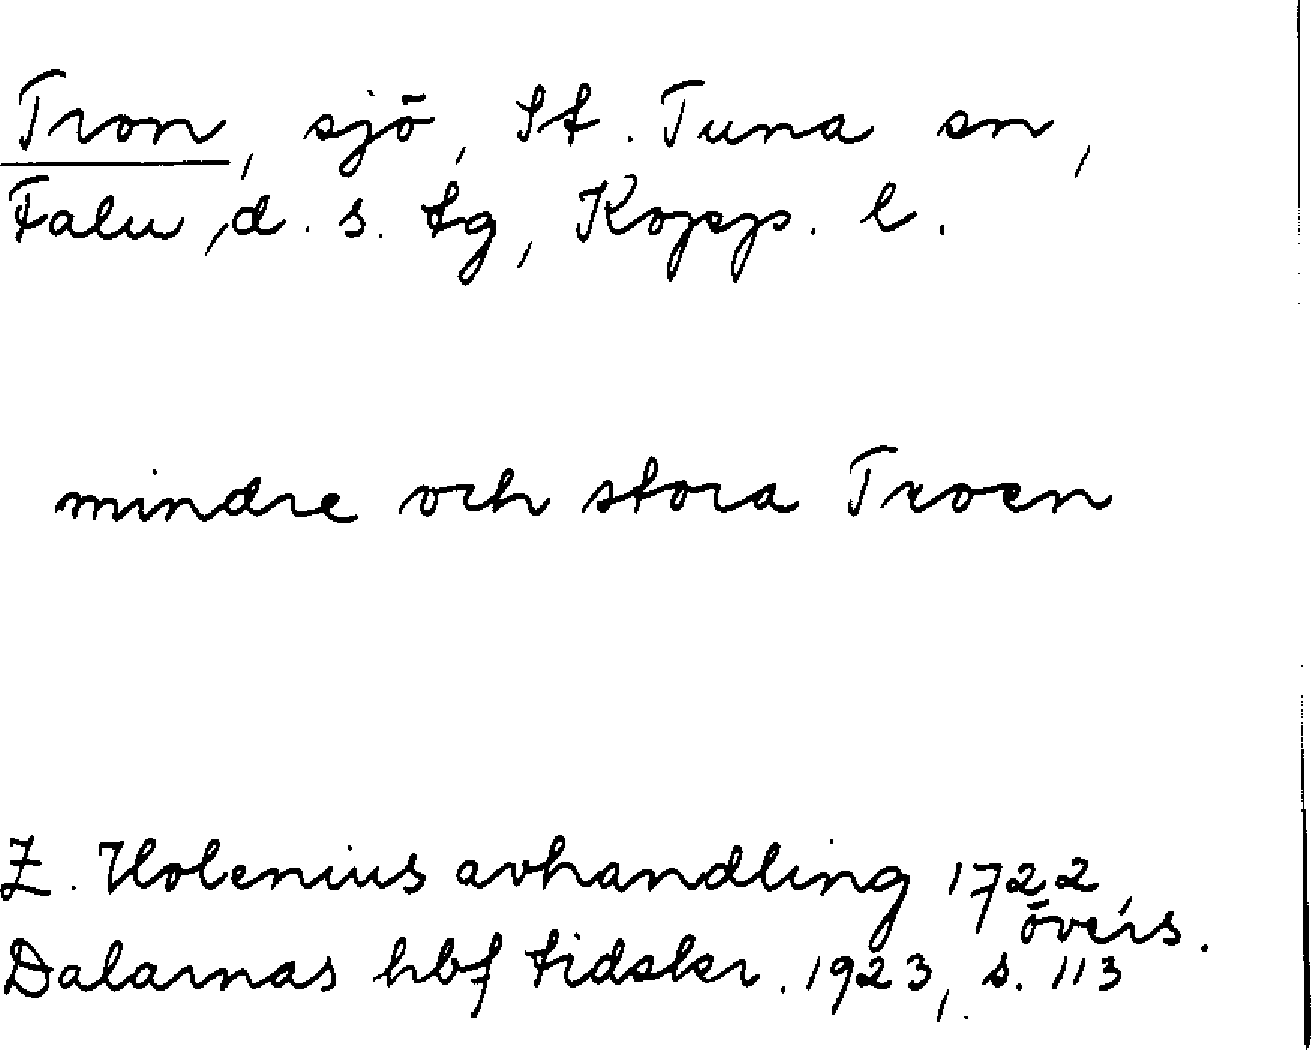 Tron, sjö, St. Tuna sn,
Falu, d. s. tg, Kopp. l.
mindre och stora Troen
Z. Holenius avhandling 1722,
övers.
Dalarnas hbf tidskr. 1923, s. 113